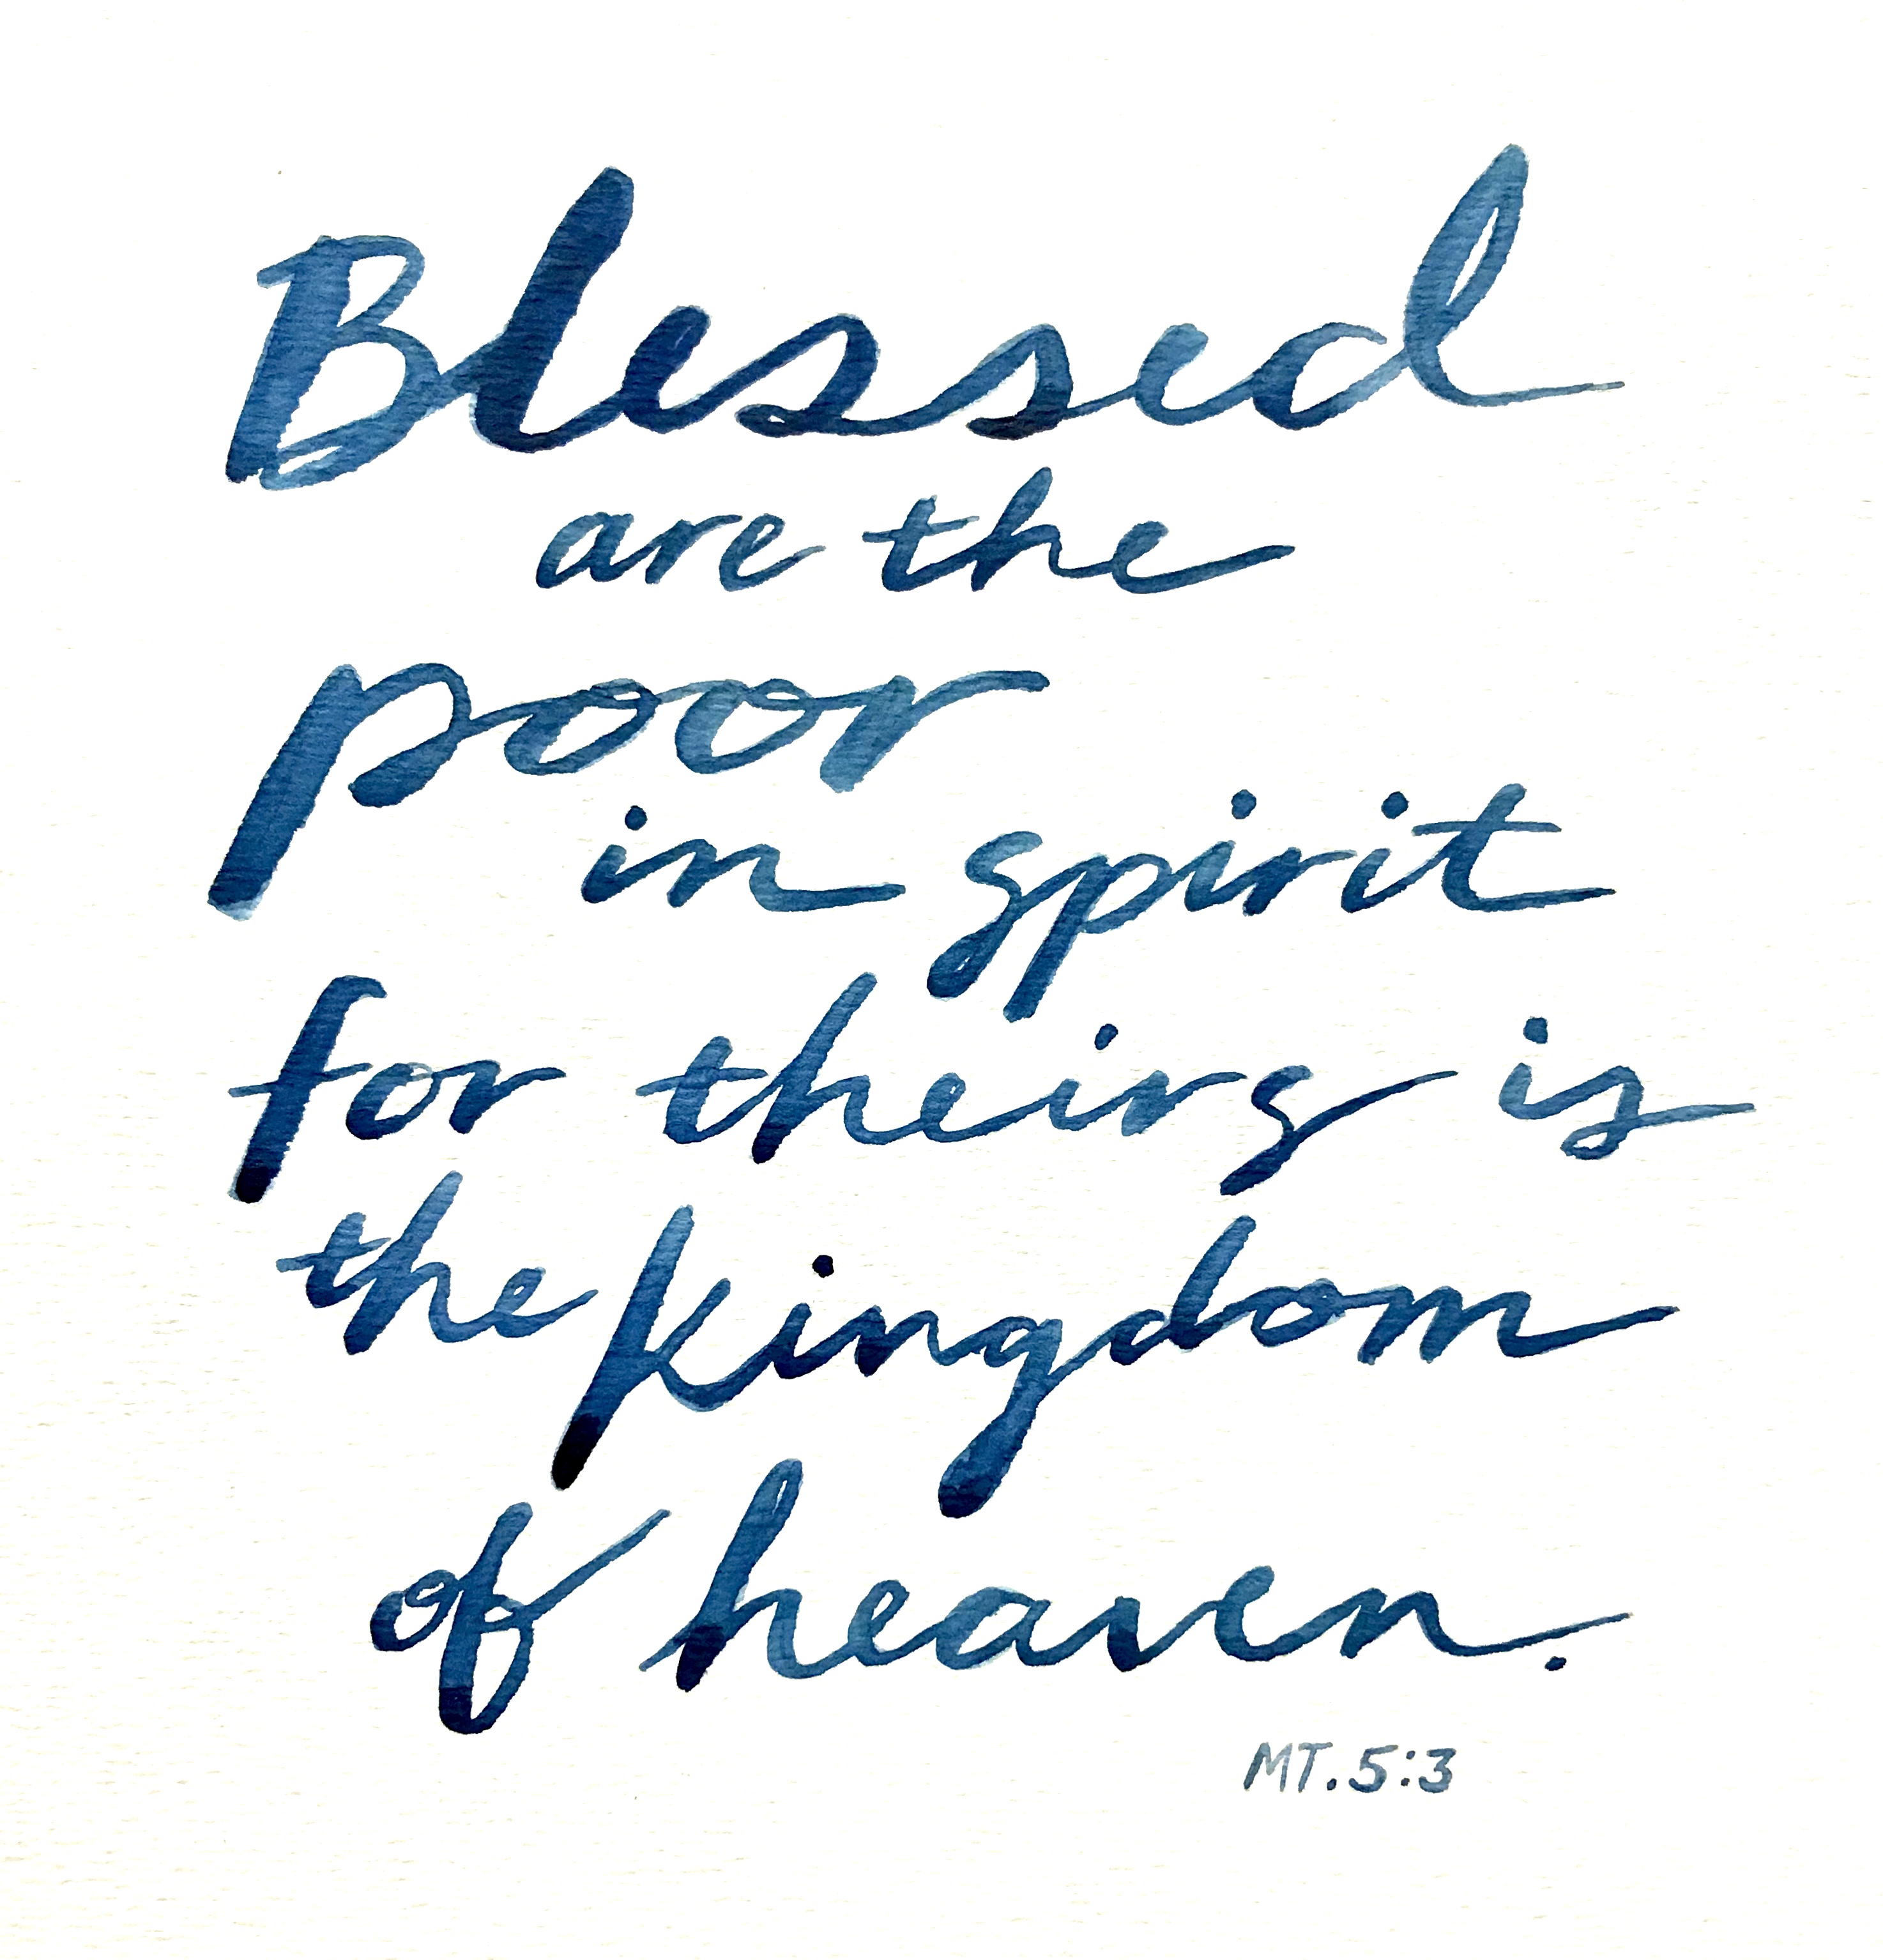 Blessed
are the
poor
in spirit
for theirs is
the kingdom
of heaven.
MT. 5:3